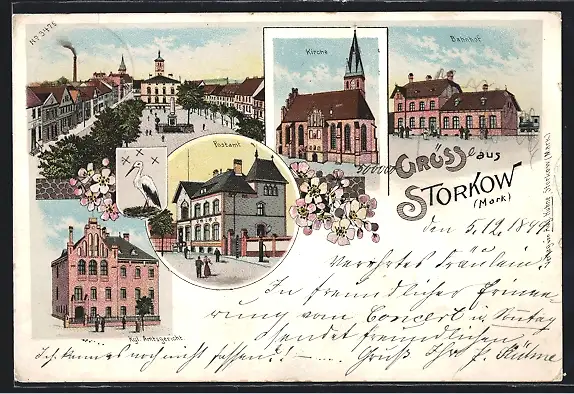 No 3476
Kirche
Bahnhof
Postamt
GRÜSS aus
STORKOW
(Mark)
Kgl. Amtsgericht.
den 5.12.1899.
Verehrtes Fräulein!
In freundlicher Erinne-
rung vom Concert u. Sonntag
sendet freundlichen
Gruß Ihr
Ich kann es noch nicht fassen! —
Storkow (Mark).